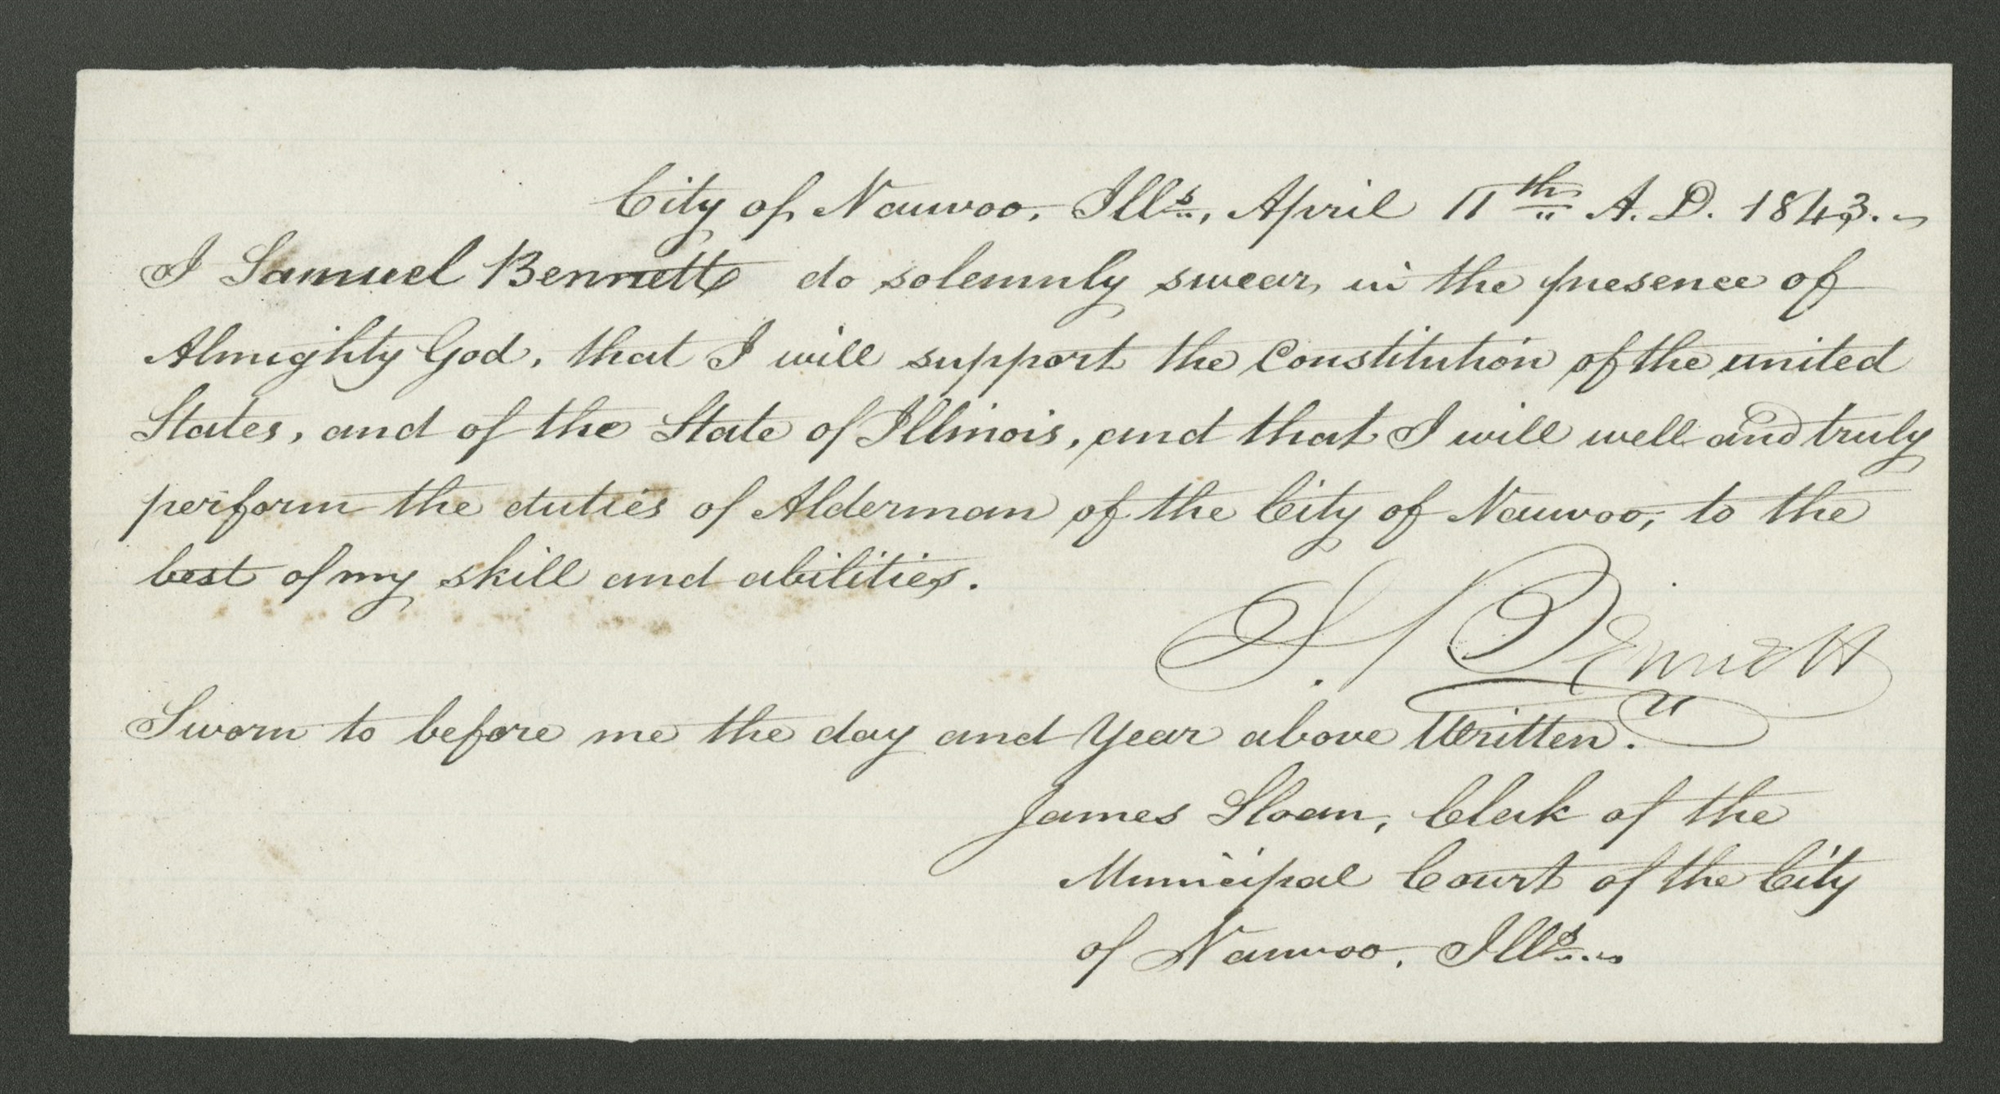 City of Nauvoo, Ills., April 11th A. D. 1843.
I Samuel Bennett do solemnly swear, in the presence of
Almighty God, that I will support the Constitution of the united
States, and of the State of Illinois, and that I will well and truly
perform the duties of Alderman of the City of Nauvoo, to the
best of my skill and abilities.
S. Bennett
Sworn to before me the day and year above written.
James Sloan, Clerk of the
Municipal Court of the City
of Nauvoo, Ills.